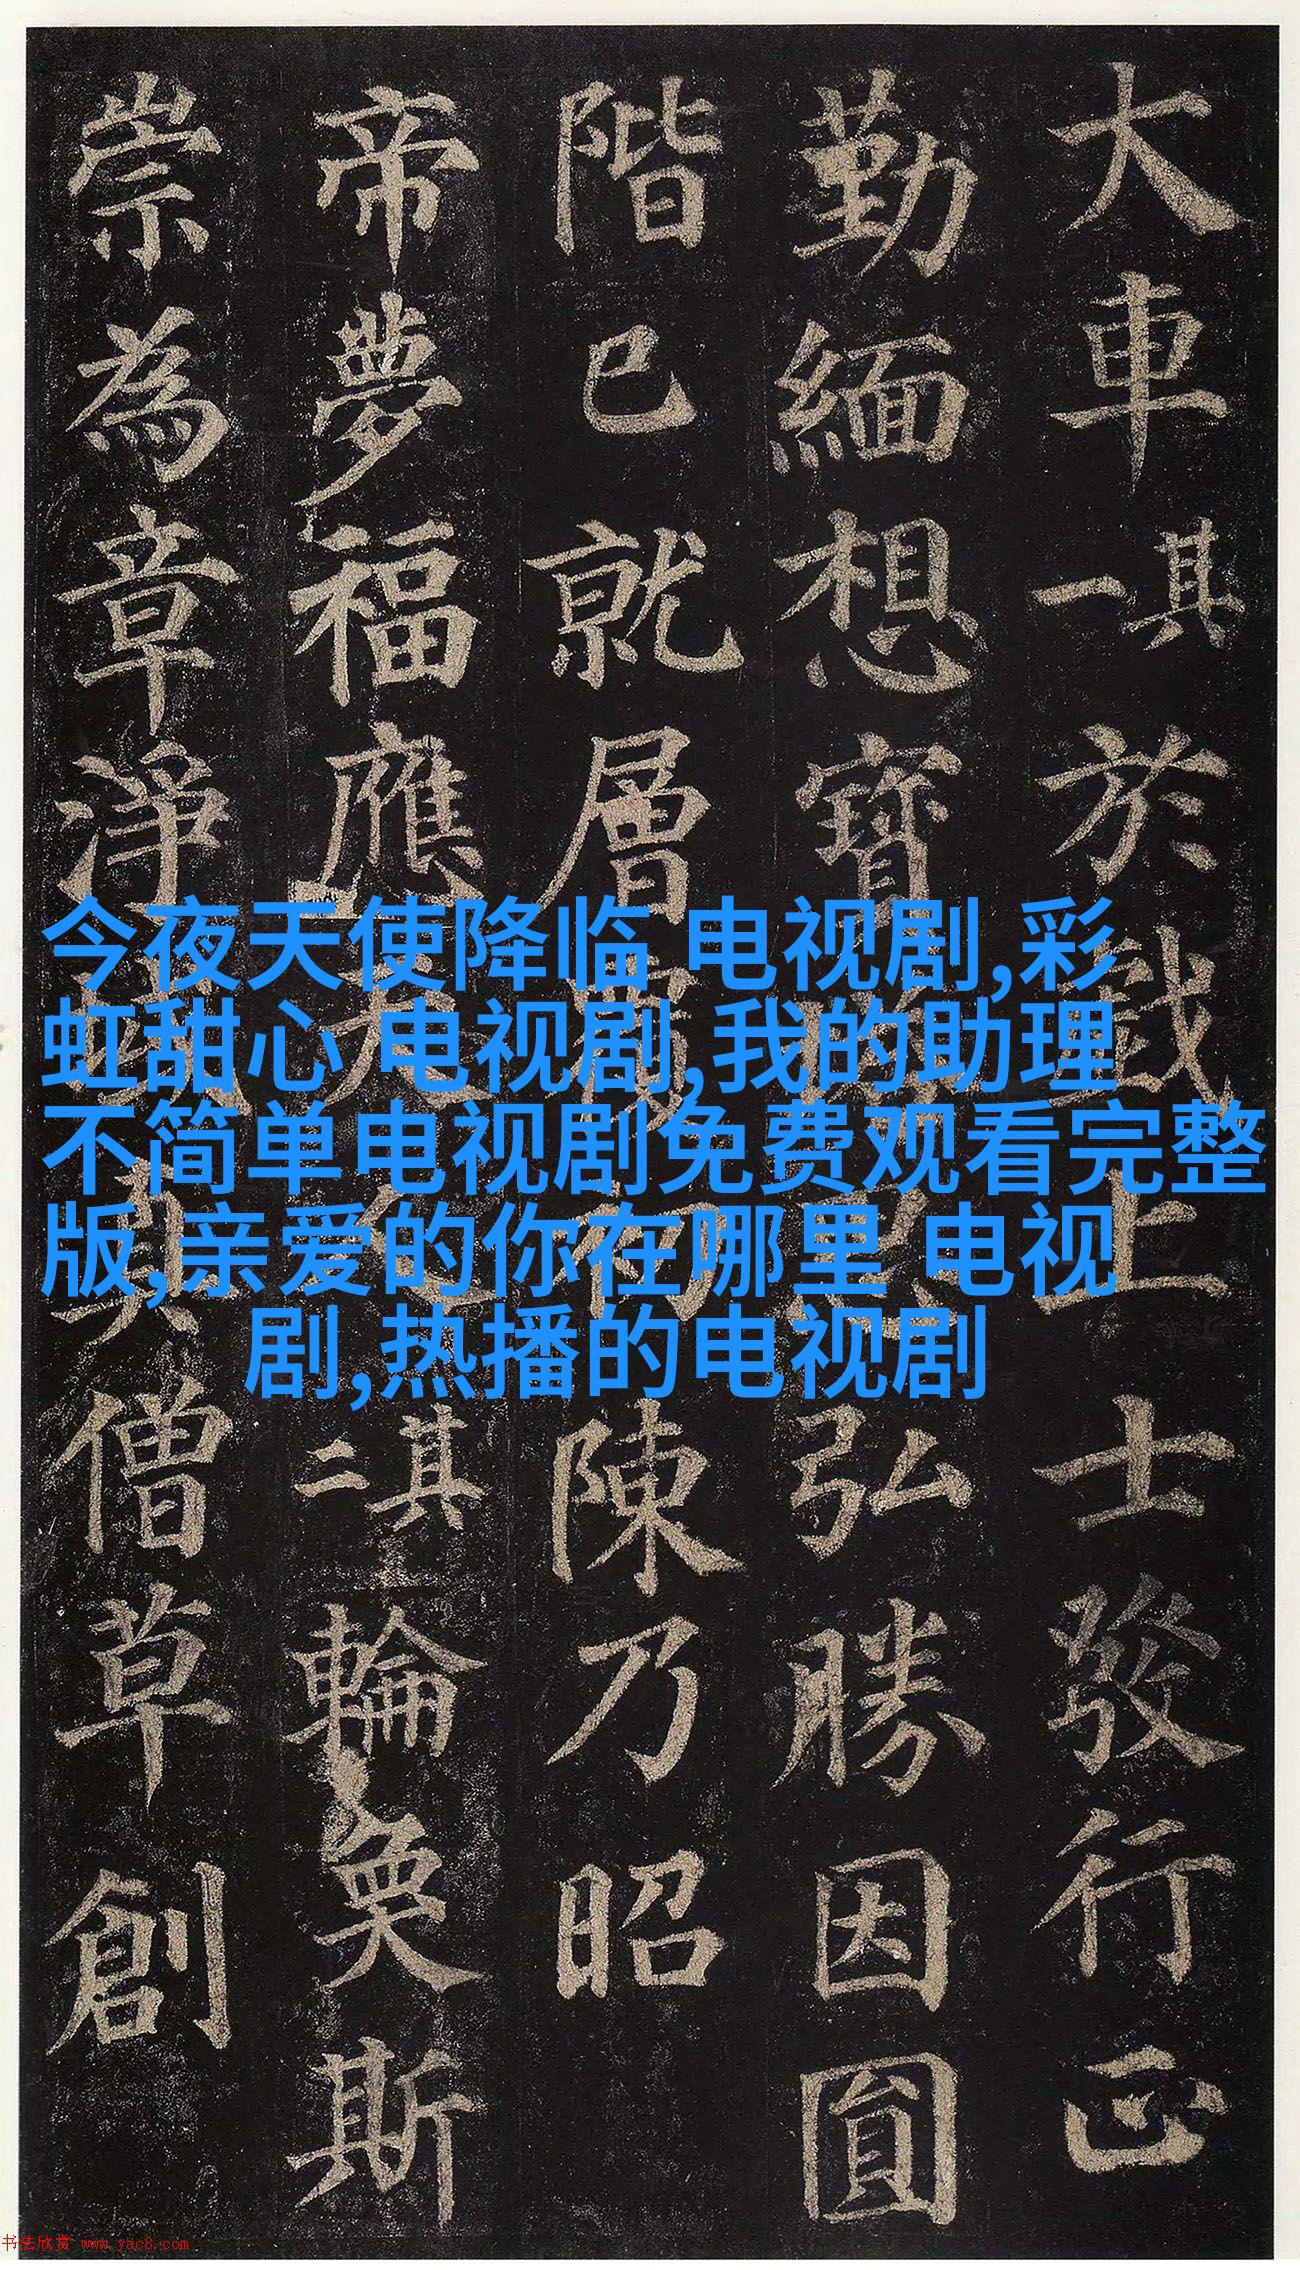 大車其一於戲上士發行正
勤緬想寶弘勝因圓
階已就層陳乃昭
帝夢福應其二輪奐斯
崇為章淨真僧草創
今夜天使降临 电视剧,彩
虹甜心 电视剧,我的助理
不简单电视剧免费观看完整
版,亲爱的你在哪里 电视
剧,热播的电视剧
书法欣赏 www.yac8.com